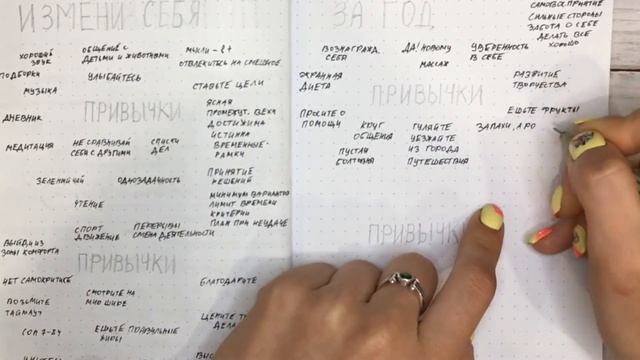 ИЗМЕНИ СЕБЯ
ХОРОШИЙ
ЗВУК
ОБЩЕНИЕ С
ДЕТЬМИ И ЖИВОТНЫМИ
МЫСЛИ - 8+
ОТВЛЕКИТЕСЬ НА СМЕШНОЕ
ПОДБОРКИ
УЛЫБАЙТЕСЬ
МУЗЫКА
СТАВЬТЕ ЦЕЛИ
ПРИВЫЧКИ
ДНЕВНИК
ЯСНАЯ
ПРОМЕЖУТ. ВЕХИ
ДОСТИЖИМА
ИСТИННА
ВРЕМЕННЫЕ-
РАМКИ
МЕДИТАЦИЯ
НЕ СРАВНИВАЙ
СЕБЯ С ДРУГИМИ
СПИСКИ
ДЕЛ
ЗЕЛЕНЫЙ ЧАЙ
ОДНОЗАДАЧНОСТЬ
ПРИНЯТИЕ
РЕШЕНИЙ
МИНИМУМ ВАРИАНТОВ
ЛИМИТ ВРЕМЕНИ
КРИТЕРИИ
ПЛАН ПРИ НЕУДАЧЕ
ЧТЕНИЕ
ВЫЙДИ ИЗ
ЗОНЫ КОМФОРТА
СПОРТ
ДВИЖЕНИЕ
ПЕРЕРЫВЫ
СМЕНА ДЕЯТЕЛЬНОСТИ
ПРИВЫЧКИ
НЕТ САМОКРИТИКЕ
СМОТРИТЕ НА
МИР ШИРЕ
БЛАГОДАРИТЕ
ВОЗЬМИТЕ
ТАЙМАУТ
ЦЕНИТЕ
ДЕЛА
СОН 7-8Ч
ЕШЬТЕ ПРАВИЛЬНЫЕ
ЖИРЫ
ЗА ГОД
САМОВОСПРИЯТИЕ
СИЛЬНЫЕ СТОРОНЫ
ЗАБОТА О СЕБЕ
ДЕЛАТЬ ВСЕ
ХОРОШО
ВОЗНАГРАЖД.
СЕБЯ
ДА! НОВОМУ
МАССАЖ
УВЕРЕННОСТЬ
В СЕБЕ
ЭКРАННАЯ
ДИЕТА
РАЗВИТИЕ
ТВОРЧЕСТВА
ПРИВЫЧКИ
ЕШЬТЕ ФРУКТЫ
ПРОСИТЕ О
ПОМОЩИ
КРУГ
ОБЩЕНИЯ
ГУЛЯЙТЕ
УЕЗЖАЙТЕ
ИЗ ГОРОДА
ПУТЕШЕСТВИЯ
ЗАПАХИ, АРО
ПУСТАЯ
БОЛТОВНЯ
ПРИВЫЧКИ